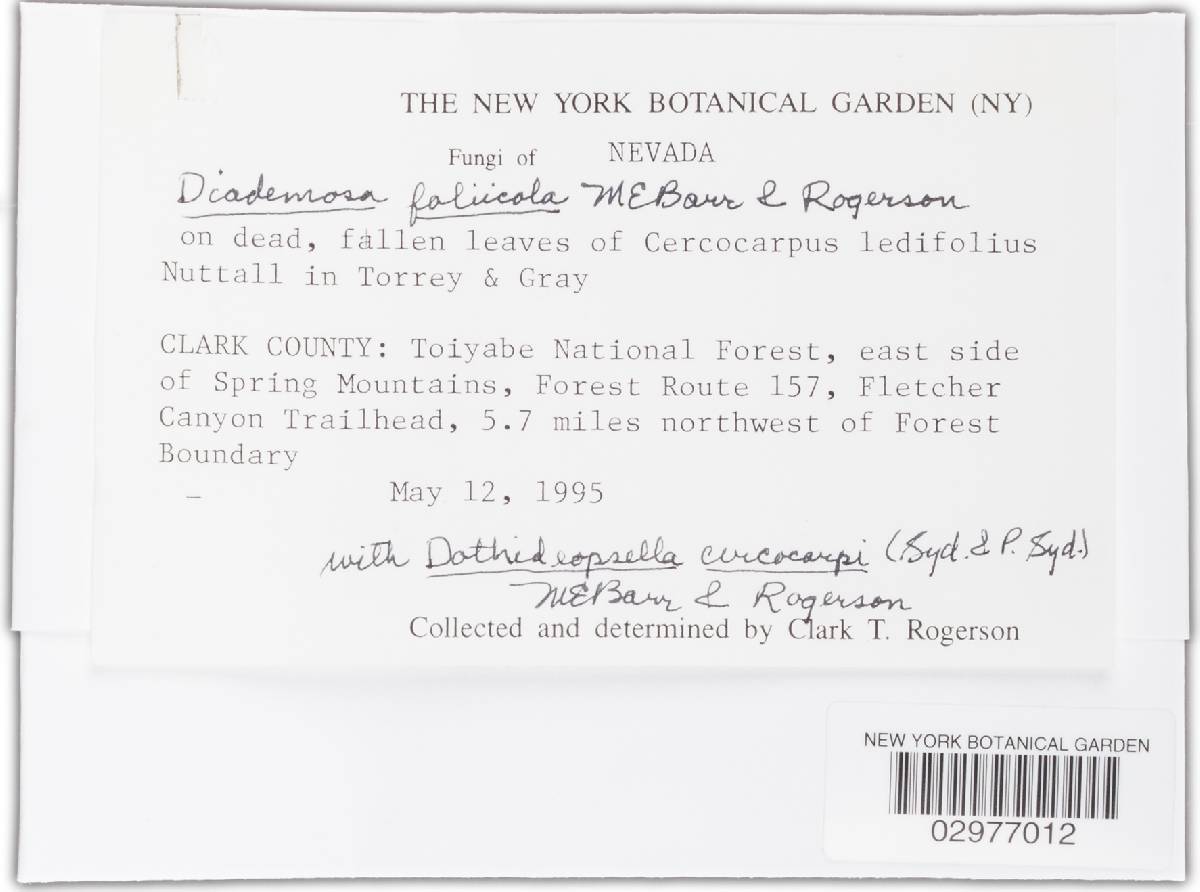 THE NEW YORK BOTANICAL GARDEN (NY)
Fungi of NEVADA
Diademosa foliicola MEBarr & Rogerson
on dead, fallen leaves of Cercocarpus ledifolius
Nuttall in Torrey & Gray
CLARK COUNTY: Toiyabe National Forest, east side
of Spring Mountains, Forest Route 157, Fletcher
Canyon Trailhead, 5.7 miles northwest of Forest
Boundary
— May 12, 1995
with Dothideopsella cercocarpi (Syd. & P. Syd.)
MEBarr & Rogerson
Collected and determined by Clark T. Rogerson
NEW YORK BOTANICAL GARDEN
02977012